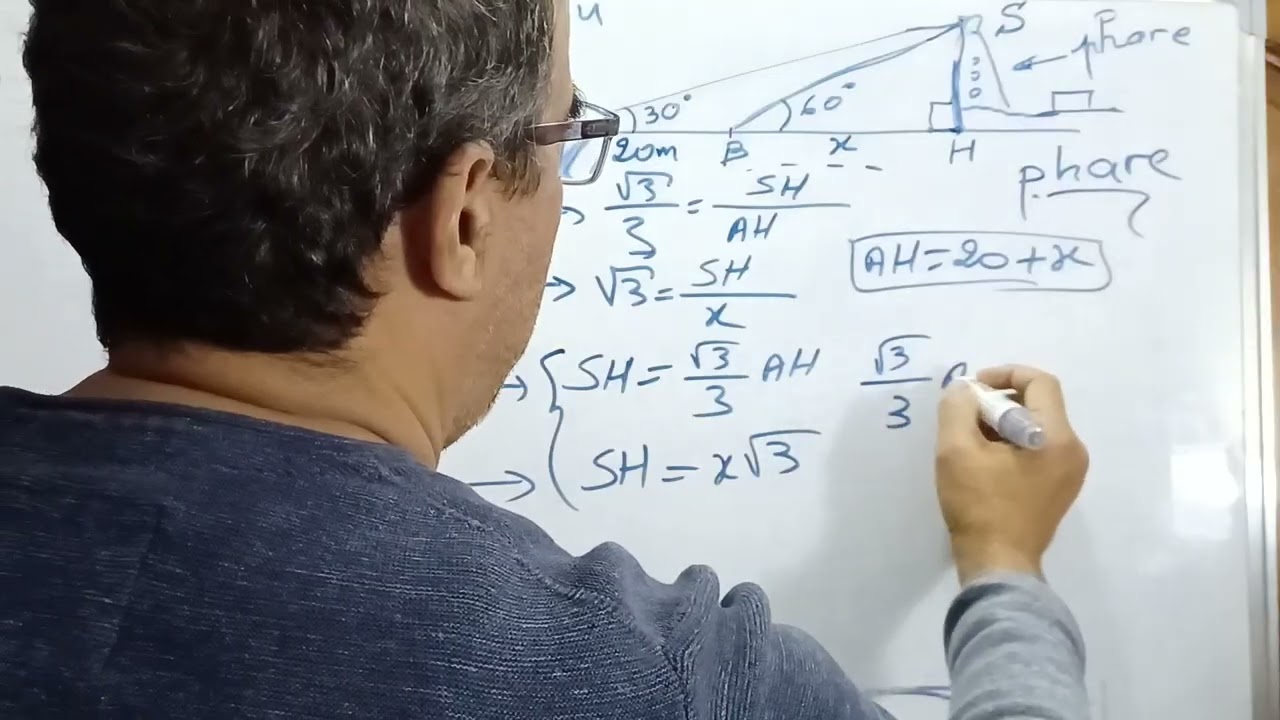 S phare
30° 60°
20m B x H
phare
√3/3 = SH/AH
AH = 20 + x
→ √3 = SH/x
→ { SH = √3/3 AH √3/3
→ SH = x√3